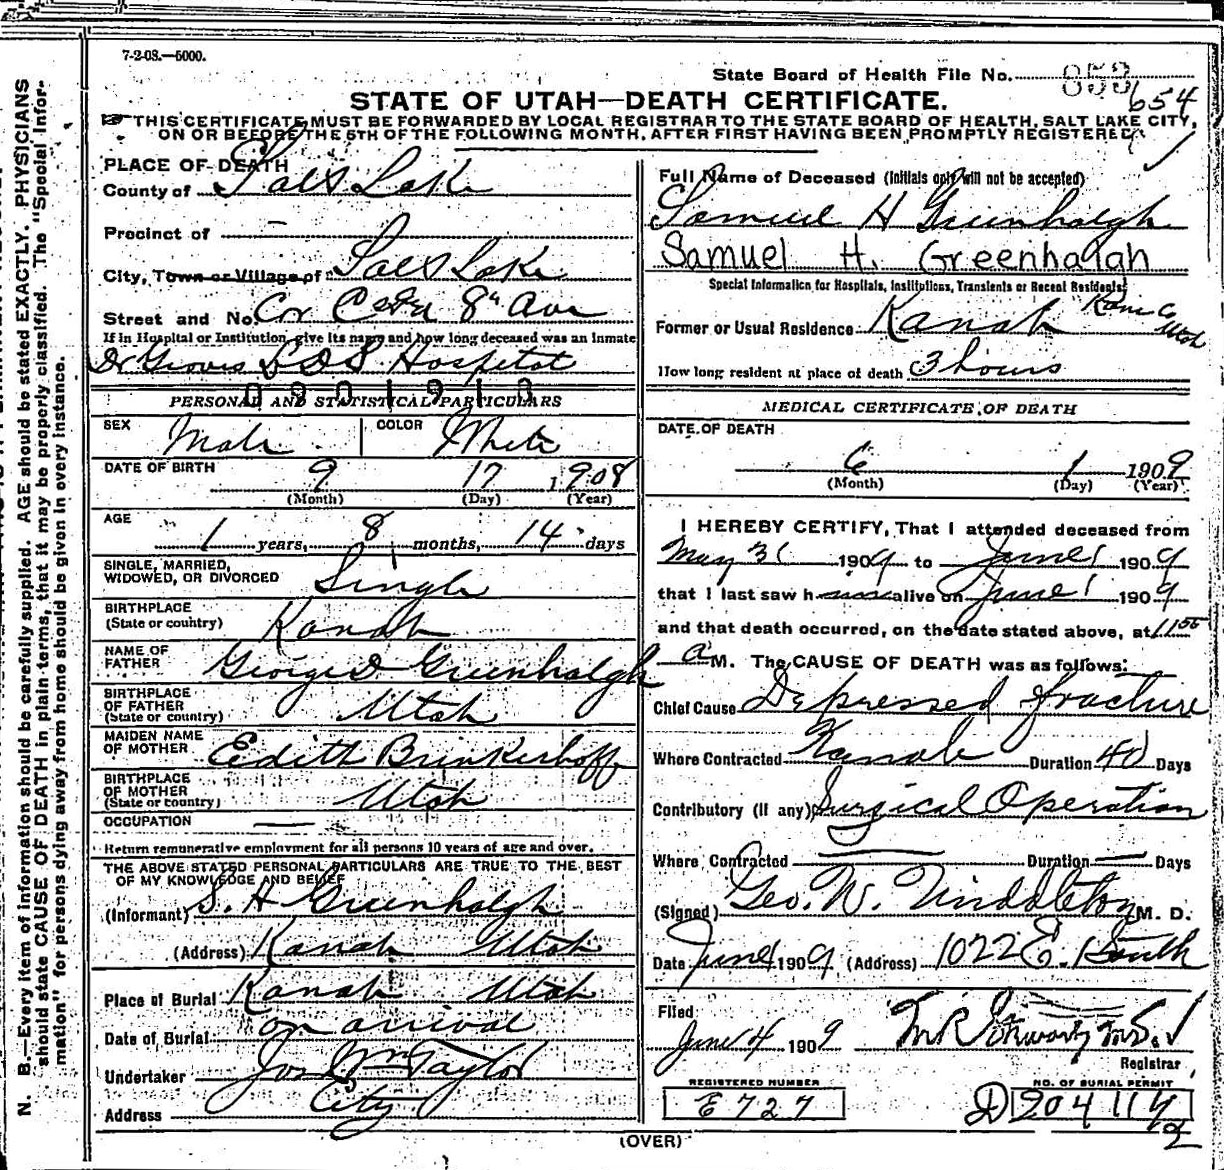 7-2-08.—5000.
State Board of Health File No. 853
654
STATE OF UTAH—DEATH CERTIFICATE.
THIS CERTIFICATE MUST BE FORWARDED BY LOCAL REGISTRAR TO THE STATE BOARD OF HEALTH, SALT LAKE CITY,
ON OR BEFORE THE 5TH OF THE FOLLOWING MONTH, AFTER FIRST HAVING BEEN PROMPTLY REGISTERED.
PLACE OF DEATH
County of Salt Lake
Precinct of —
City, Town or Village of Salt Lake
Street and No. Cor C & 8th Ave
If in Hospital or Institution, give its name and how long deceased was an inmate
Dr Groves L D S Hospital
0901913
PERSONAL AND STATISTICAL PARTICULARS
SEX Male
COLOR White
DATE OF BIRTH 9 17 1908
(Month) (Day) (Year)
AGE 1 years, 8 months, 14 days
SINGLE, MARRIED,
WIDOWED, OR DIVORCED Single
BIRTHPLACE
(State or country) Kanab
NAME OF
FATHER George D Greenhalgh
BIRTHPLACE
OF FATHER
(State or country) Utah
MAIDEN NAME
OF MOTHER Edith Brinkerhoff
BIRTHPLACE
OF MOTHER
(State or country) Utah
OCCUPATION —
Return remunerative employment for all persons 10 years of age and over.
THE ABOVE STATED PERSONAL PARTICULARS ARE TRUE TO THE BEST
OF MY KNOWLEDGE AND BELIEF
(Informant) S. H Greenhalgh
(Address) Kanab Utah
Place of Burial Kanab Utah
Date of Burial on arrival
Undertaker Jos Wm Taylor
Address City
Full Name of Deceased (Initials only will not be accepted)
Samuel H Greenhalgh
Samuel H. Greenhalgh
Special Information for Hospitals, Institutions, Transients or Recent Residents
Former or Usual Residence Kanab Kane Co Utah
How long resident at place of death 3 hours
MEDICAL CERTIFICATE OF DEATH
DATE OF DEATH
6 1 1909
(Month) (Day) (Year)
I HEREBY CERTIFY, That I attended deceased from
May 31 1909 to June 1 1909
that I last saw h alive on June 1 1909
and that death occurred, on the date stated above, at 11 55
a M. The CAUSE OF DEATH was as follows:
Chief Cause Depressed fracture
Where Contracted Kanab Duration 40 Days
Contributory (if any) Surgical Operation
Where Contracted — Duration — Days
(Signed) Geo. W. Middleton M. D.
Date June 1 1909 (Address) 1022 E. South
Filed
June 4 1909
Registrar
REGISTERED NUMBER
E 727
NO. OF BURIAL PERMIT
D 204
(OVER)
N. B.—Every item of information should be carefully supplied. AGE should be stated EXACTLY. PHYSICIANS
should state CAUSE OF DEATH in plain terms, that it may be properly classified. The "Special Infor-
mation" for persons dying away from home should be given in every instance.